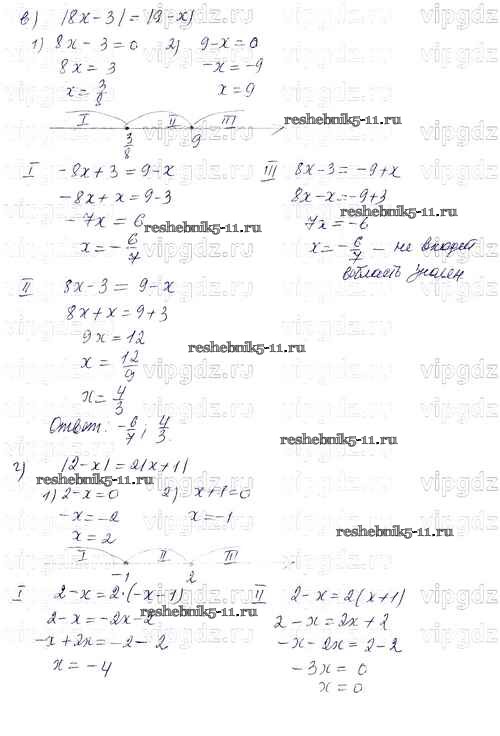 в) |8x - 3| = |9 - x|
1) 8x - 3 = 0 2) 9 - x = 0
8x = 3 -x = -9
x = 3/8 x = 9
I II III
3/8 9
reshebnik5-11.ru
I -8x + 3 = 9 - x III 8x - 3 = -9 + x
-8x + x = 9 - 3 8x - x = -9 + 3
-7x = 6 7x = -6
reshebnik5-11.ru
x = -6/7 x = -6/7 — не входит
в область значен
II 8x - 3 = 9 - x
8x + x = 9 + 3
9x = 12
reshebnik5-11.ru
x = 12/9
x = 4/3
Ответ: -6/7; 4/3
reshebnik5-11.ru
г) |2 - x| = 2|x + 1|
reshebnik5-11.ru
1) 2 - x = 0 2) x + 1 = 0
-x = -2 x = -1
x = 2
reshebnik5-11.ru
I II III
-1 2
I 2 - x = 2·(-x - 1) II 2 - x = 2(x + 1)
reshebnik5-11.ru
2 - x = -2x - 2 2 - x = 2x + 2
-x + 2x = -2 - 2 -x - 2x = 2 - 2
x = -4 -3x = 0
x = 0
vipgdz.ru